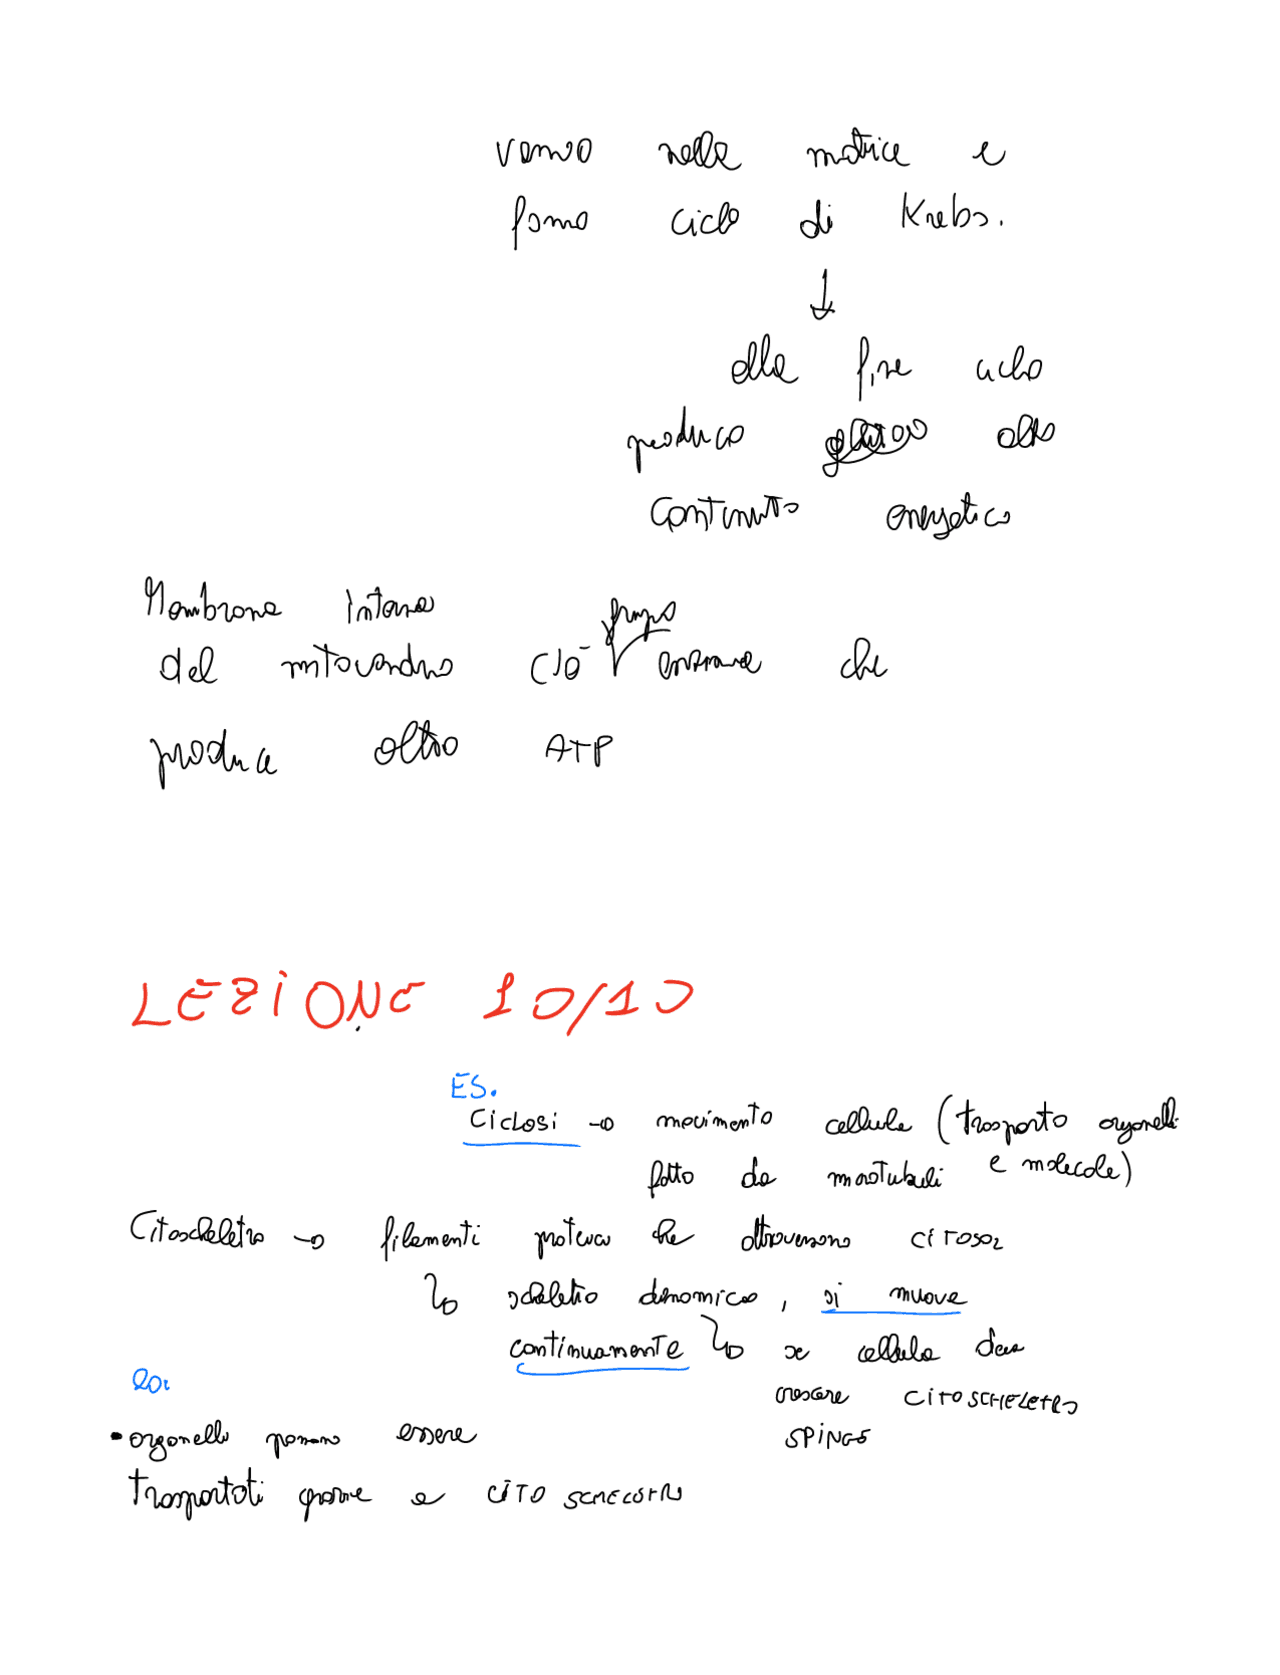 vanno nella matrice e
fanno ciclo di Krebs.
↓
alla fine ciclo
produco alto
contenuto energetico
Membrana interna
gruppo
del mitocondrio c'è enzima che
produce altro ATP
LEZIONE 10/10
ES.
Ciclosi → movimento cellula (trasporto organelli
fatto da e molecole)
Citoscheletro → filamenti proteici che attraversano CITOSOL
↳ scheletro dinamico, si muove
continuamente ↳ se cellula deve
crescere CITOSCHELETRO
SPINGE
• organelli possono essere
trasportati grazie a CITOSCHELETRO